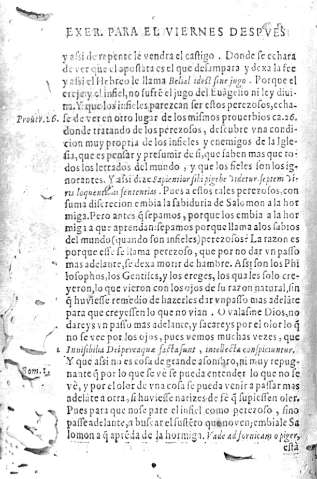 EXER. PARA EL VIERNES DESPVES
y assi de repente le vendra el castigo. Donde se echara
de ver que el apostata es el que desampara y dexa la fee
y assi el Hebreo le llama Belial idest sine jugo. Porque el
erege y el infiel, no sufre el jugo del Euãgelio ni ley diui
na. Y que los infieles parezcan ser estos perezosos, echa-
Prouer. 26. se de ver en otro lugar de los mismos prouerbios ca. 26.
donde tratando de los perezosos, descubre vna condi-
cion muy propria de los infieles y enemigos de la Igle-
sia, que es pensar y presumir de si, que saben mas que to-
dos los letrados del mundo, y que los fieles son los ig-
norantes. Y assi dize Sapientior sibi piger videtur septem vi-
ris loquentibus sententias. Pues a estos tales perezosos, con
suma discrecion embia la sabiduria de Salomon a la hor
miga. Pero antes q̃ sepamos, porque los embia a la hor
miga a que aprendan: sepamos porque llama a los sabios
del mundo (quando son infieles) perezosos? La razon es
porque esse se llama perezoso, que por no dar vn passo
mas adelante, se dexa morir de hambre. Assi son los Phi
losophos, los Gentiles, y los ereges, los quales solo cre-
yeron, lo que vieron con los ojos de su razon natural, sin
q̃ huuiesse remedio de hazerles dar vn passo mas adelãte
para que creyessen lo que no vian. O valasme Dios, no
dareys vn passo mas adelante, y sacareys por el olor lo q̃
no se vee por los ojos, pues vemos muchas vezes, que
Inuisibilia Dei per ea quæ facta sunt, intellecta conspiciuntur.
Rom. 1. Y que assi no es cosa de grande assombro, ni muy repug-
nante q̃ por lo que se vè se pueda entender lo que no se
vè, y por el olor de vna cosa se pueda venir a passar mas
adelãte a otra, si huuiesse narizes de fè q̃ supiessen oler.
Pues para que no se pare el infiel como perezoso, sino
passe adelante, a buscar el susteto que no ven; embiale Sa
lomon a q̃ aprẽda de la hormiga. Vade ad formicam o piger,
està